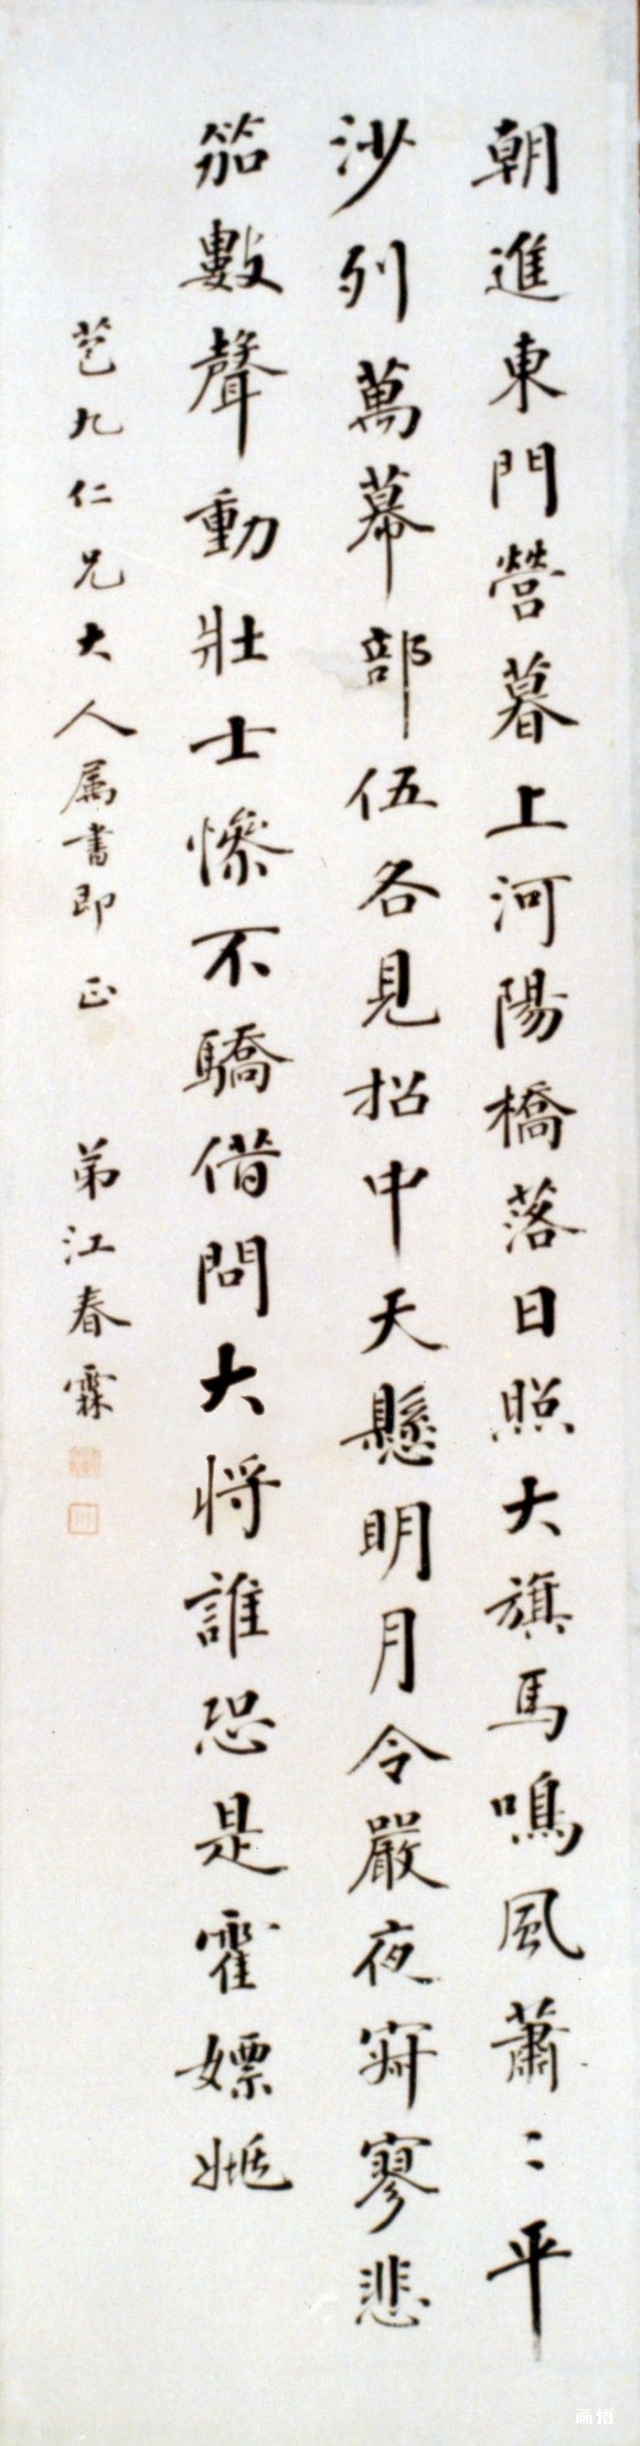 朝進東門營暮上河陽橋落日照大旗馬鳴風蕭〻平
沙列萬幕部伍各見招中天懸明月令嚴夜寂寥悲
笳數聲動壯士慘不驕借問大将誰恐是霍嫖姚
九仁兄大人属書即正
弟江春霖
画悟